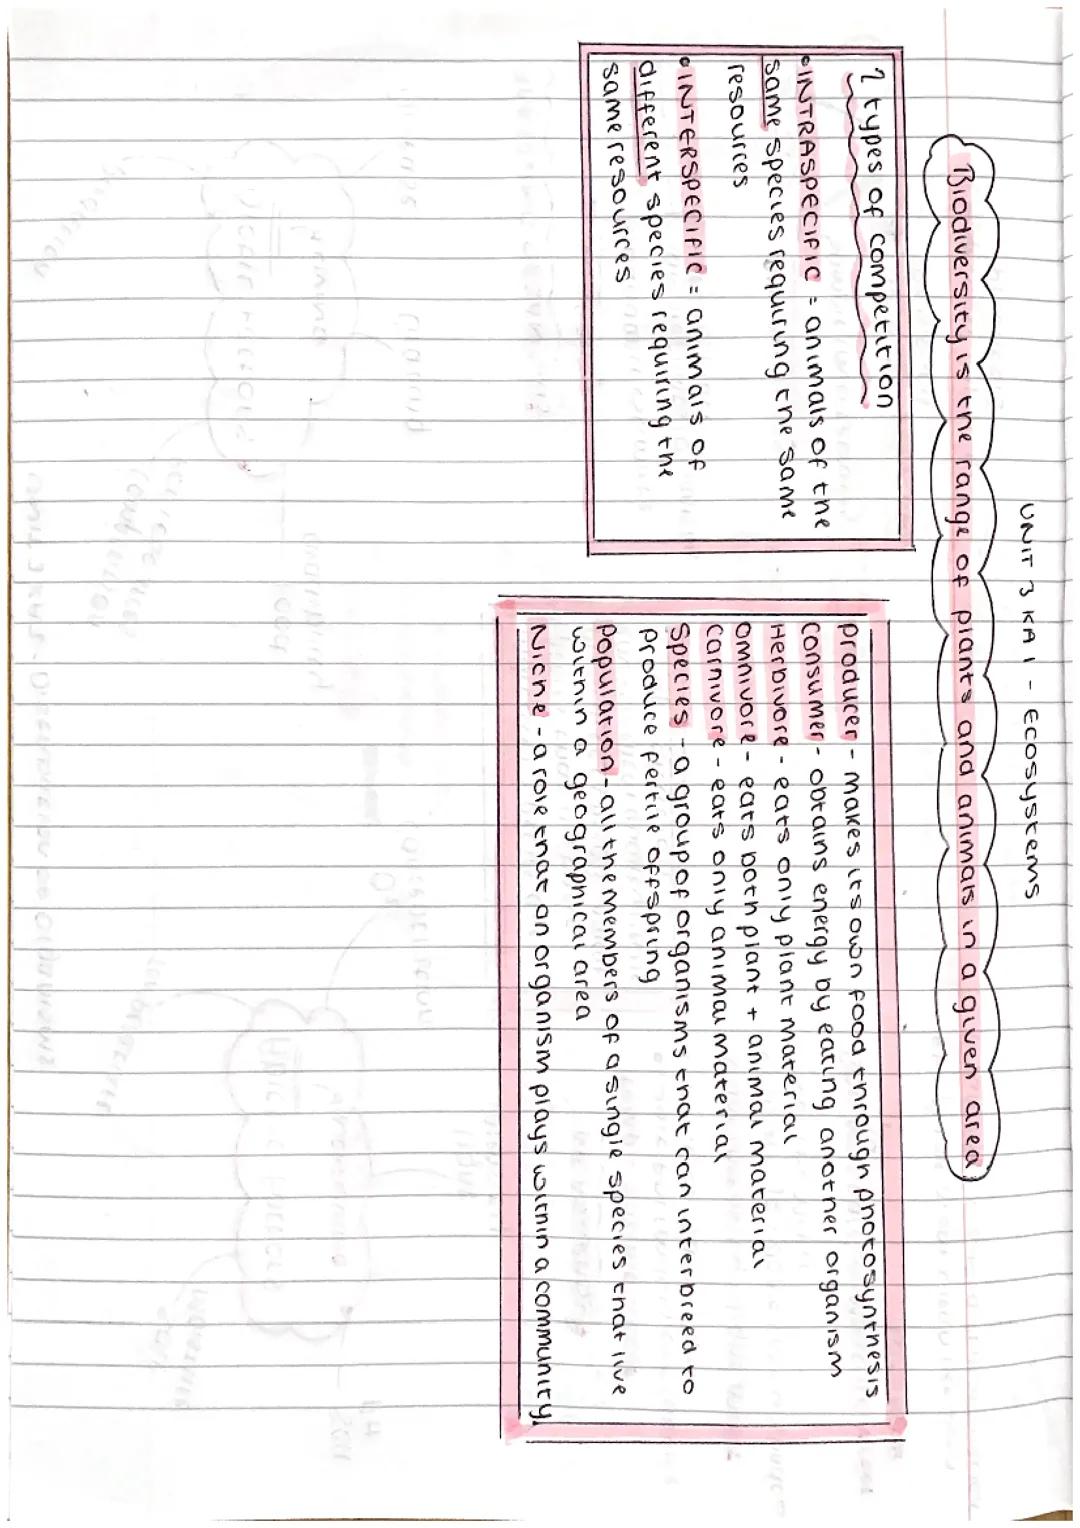 UNIT 3 KA1 - ECOSYSTEMS
Biodiversity is the range of plants and animals in a given area
2 types of competition
• INTRASPECIFIC = animals of the
same species requiring the same
resources
• INTERSPECIFIC = animals of
different species requiring the
same resources
producer - makes its own food through photosynthesis
consumer - obtains energy by eating another organism
Herbivore - eats only plant material
omnivore - eats both plant + animal material
carnivore - eats only animal material
Species - a group of organisms that can interbreed to
produce fertile offspring
Population - all the members of a single species that live
within a geographical area
Niche - a role that an organism plays within a community